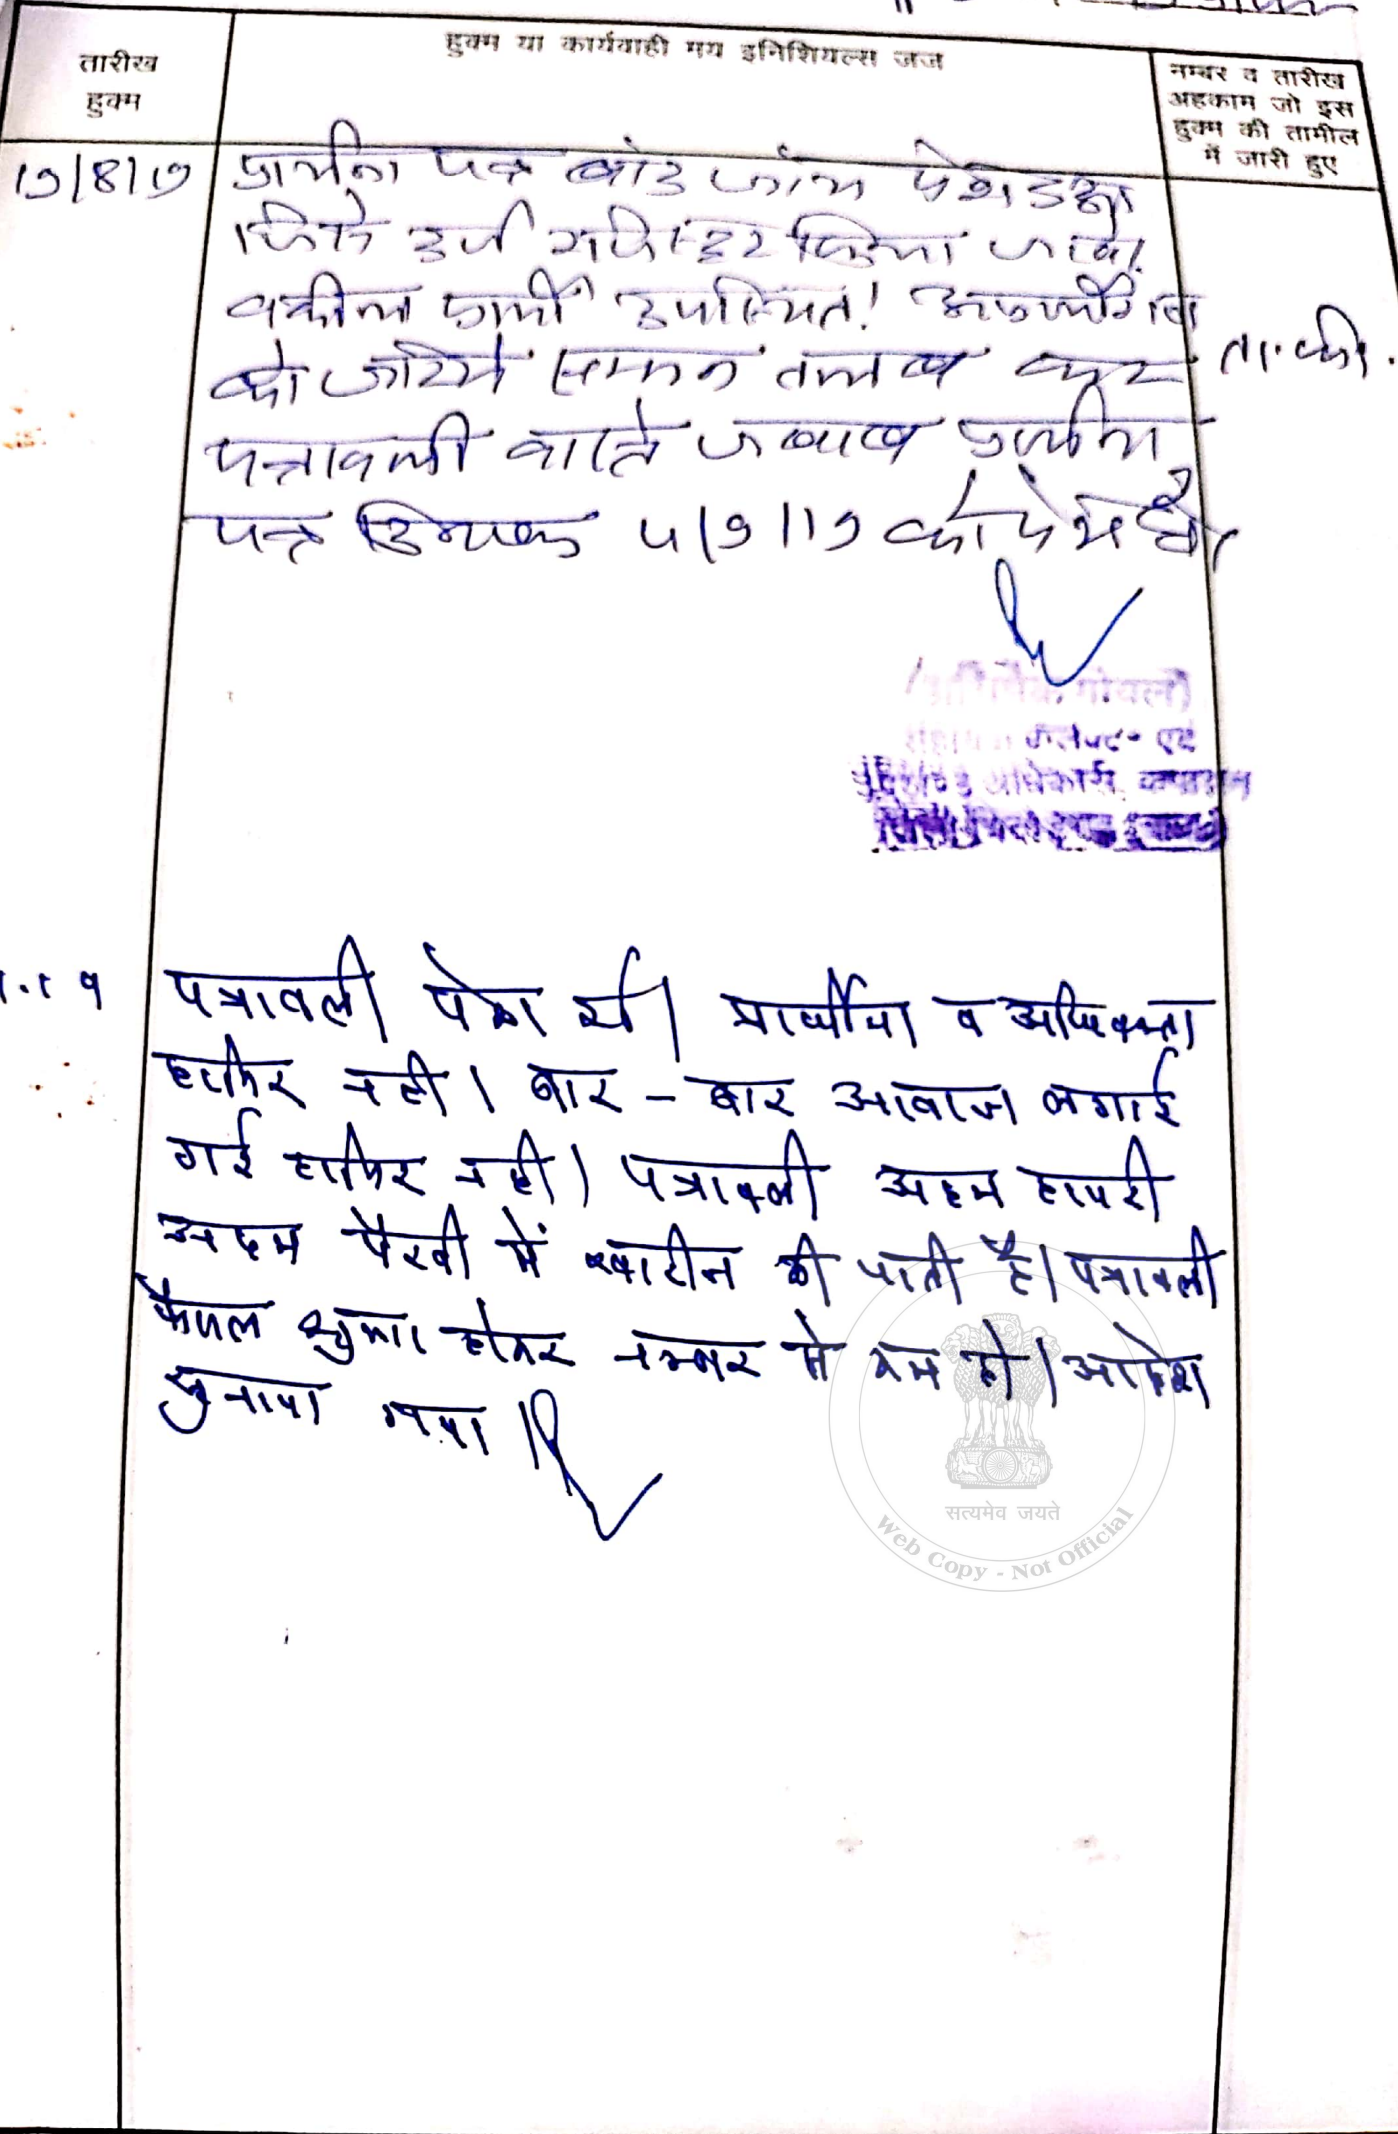 तारीख
हुक्म
हुक्म या कार्यवाही मय इनिशियल्स जज
नम्बर व तारीख
अहकाम जो इस
हुक्म की तामील
में जारी हुए
प्रार्थना पत्र बाद जांच पेश हुआ
दर्ज रजिस्टर किया जावे
वकील प्रार्थी उपस्थित। अप्रार्थीगण
को जरिये सम्मन तलब कर
पत्रावली वास्ते जवाब प्रार्थना
पत्र दिनांक को पेश हो
पत्रावली पेश हुई। प्रार्थीया व अधिवक्ता
हाजिर नही। बार - बार आवाज लगाई
गई हाजिर नही। पत्रावली अदम हाजरी
अदम पैरवी में खारीज की जाती है। पत्रावली
फैसल शुमार होकर नम्बर से कम हो। आदेश
सुनाया गया।
सत्यमेव जयते
Web Copy - Not Official